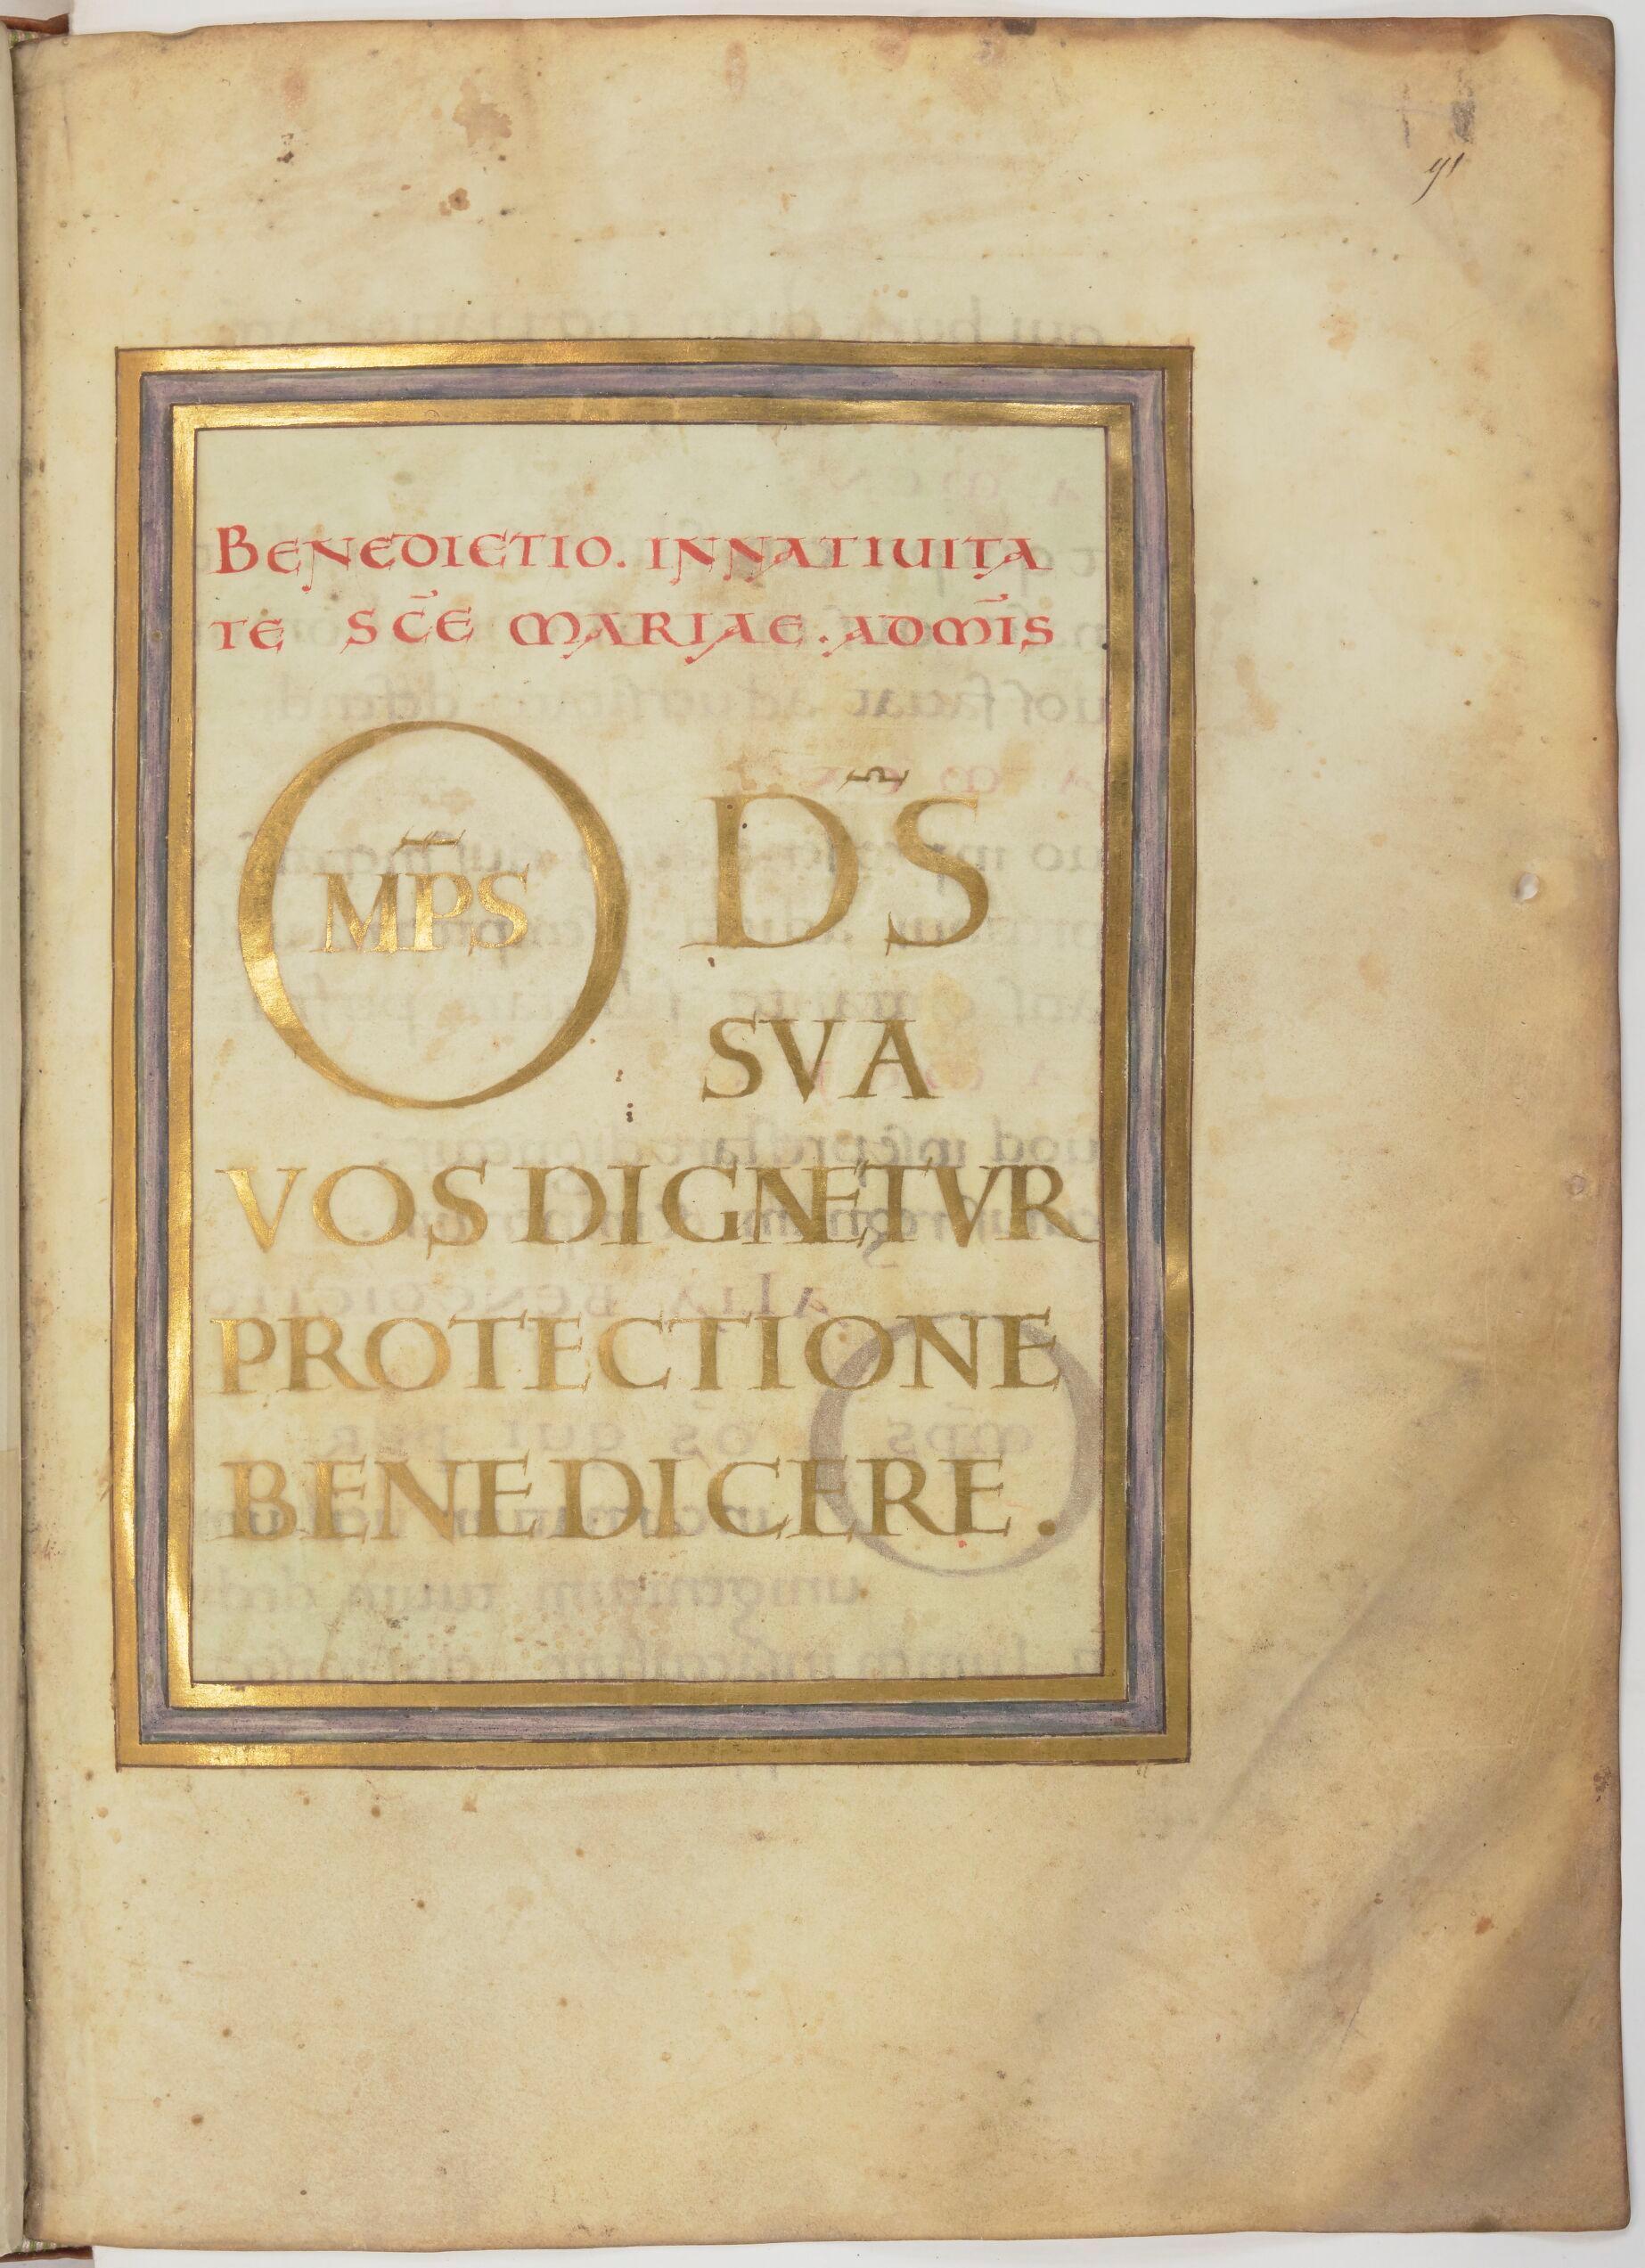 91
BENEDICTIO. INNATIUITA
TE SC̄E MARIAE. ADMĪS
OMP̄S D̄S
SVA
VOS DIGNETVR
PROTECTIONE
BENEDICERE.